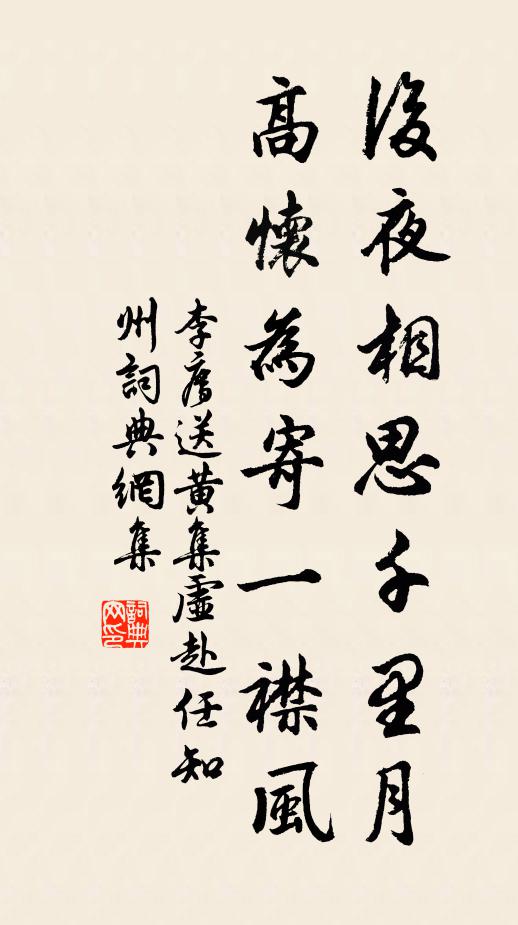 後夜相思千里月
高懷為寄一襟風
李廌送黃集虛赴任知
州詞典網集
詞典
网印